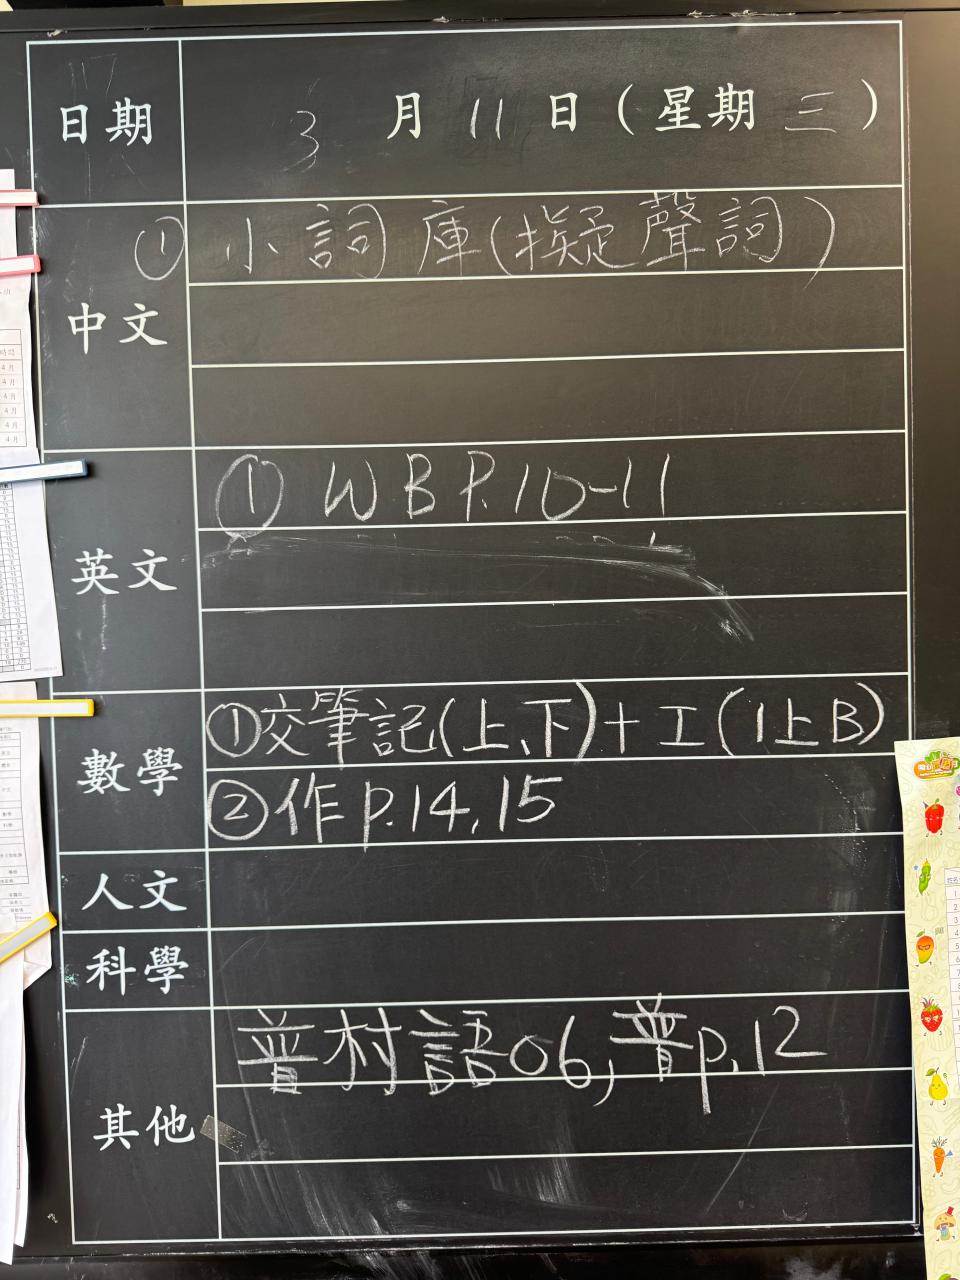 日期 3 月 11 日 ( 星期 三 )
中文
① 小詞庫(擬聲詞)
英文
① WB P.10-11
數學
①交筆記(上、下)+工(1上B)
②作 p.14, 15
人文
科學
其他
普村語06, 普p.12